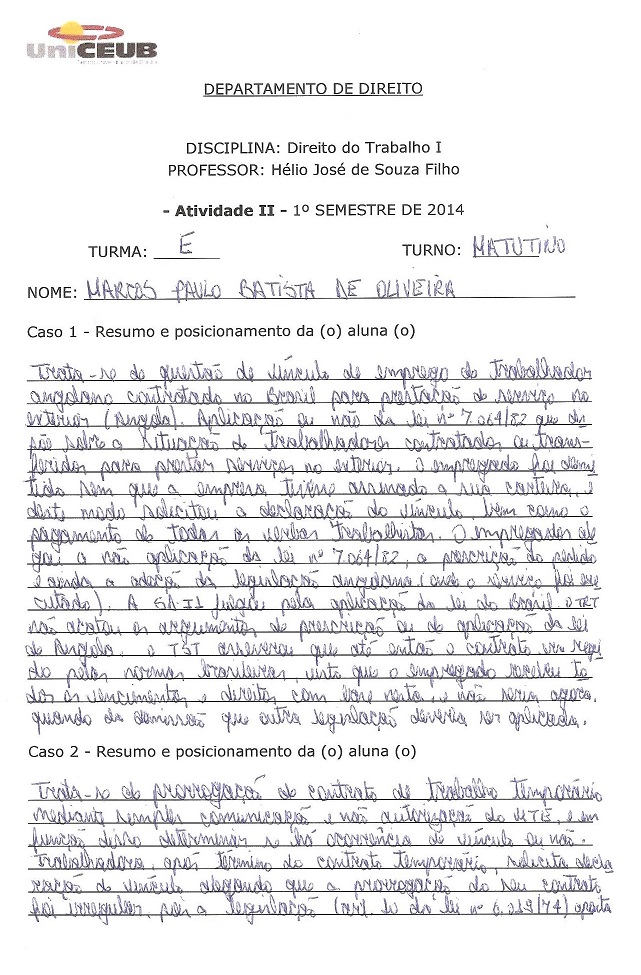 UniCEUB
DEPARTAMENTO DE DIREITO
DISCIPLINA: Direito do Trabalho I
PROFESSOR: Hélio José de Souza Filho
- Atividade II - 1º SEMESTRE DE 2014
TURMA: E TURNO: MATUTINO
NOME: MARCOS PAULO BATISTA DE OLIVEIRA
Caso 1 - Resumo e posicionamento da (o) aluna (o)
Trata-se de questão de vínculo de emprego de trabalhador
angolano contratado no Brasil para prestação de serviço no
exterior (Angola). Aplicação ou não da lei nº 7.064/82 que dis
põe sobre a situação de trabalhadores contratados ou trans-
feridos para prestar serviços no exterior. O empregado foi demi
tido sem que a empresa tivesse assinado a sua carteira, e
deste modo solicitou a declaração do vínculo bem como o
pagamento de todas as verbas trabalhistas. O empregador ale
gou a não aplicação da lei nº 7.064/82, a prescrição do pedido
e ainda a adoção da legislação angolana (onde o serviço foi exe
cutado). A julgou pela aplicação da lei do Brasil. O TRT
não acatou os argumentos de prescrição ou de aplicação da lei
de Angola. O TST asseverou que até então o contrato era regi
do pelas normas brasileiras, visto que o empregado recebeu to
dos os vencimentos e direitos com base nesta, e não seria agora,
quando da demissão que outra legislação deveria ser aplicada.
Caso 2 - Resumo e posicionamento da (o) aluna (o)
Trata-se de prorrogação de contrato de trabalho temporário
mediante simples comunicação e não autorização do MTE, e em
função disso determinar se há ocorrência de vínculo ou não.
Trabalhadora, após término do contrato temporário, solicita decla
ração de vínculo alegando que a prorrogação do seu contrato
foi irregular, pois a legislação (art. 10 da lei nº 6.019/74) aponta